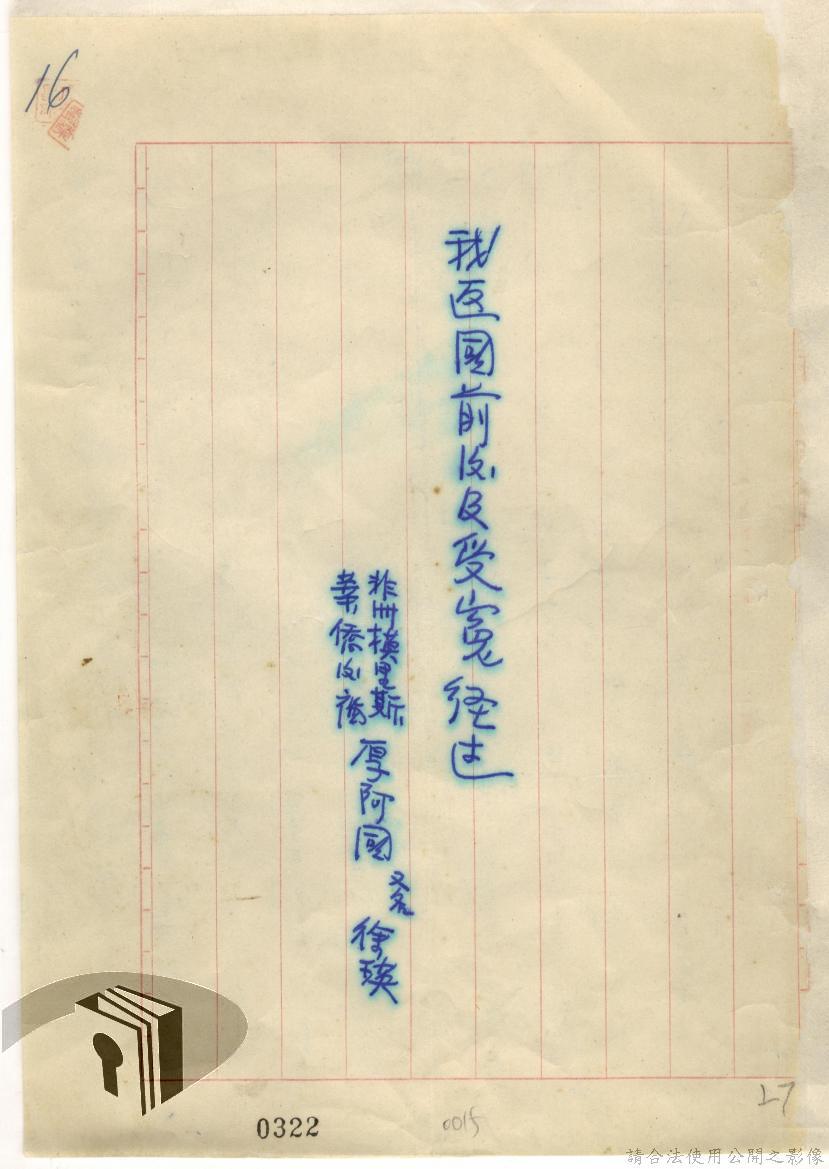 16
我返國前后及受寃経过
非洲模里斯
華僑后裔
厚阿國
又名
徐瑛
27
0322
0015
請合法使用公開之影像